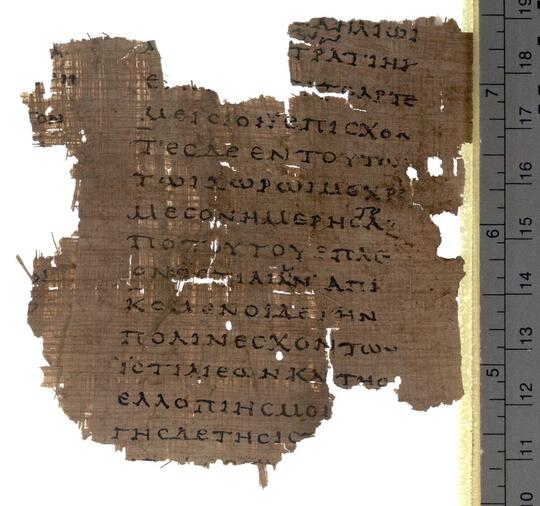 ΑΗΛΙΩΙ
ΤΡΑΤΙΗΙ
ΙΤΟΑΡΤΕ
ΜΕΙϹΙΟΝΕΠΙϹΧΟΝ
ΤΕϹΔΕΕΝΤΟΥΤΩ
ΤΩΙΧΩΡΩΙΜΕΧΡΙ
ΜΕϹΟΝΗΜΕΡΗϹΑ
ΠΟΤΟΥΤΟΥΕΠΛΕ
ΟΝΕϹΤΙΑΙΗΝ ΑΠΙ
ΚΟΜΕΝΟΙΔΕΤΗΝ
ΠΟΛΙΝΕϹΧΟΝΤΩΝ
ΙϹΤΙΑΙΕΩΝΚΑΙΤΗϹ
ΕΛΛΟΠΙΗϹΜΟΙ
ΓΗϹΔΕΤΗϹΙϹ